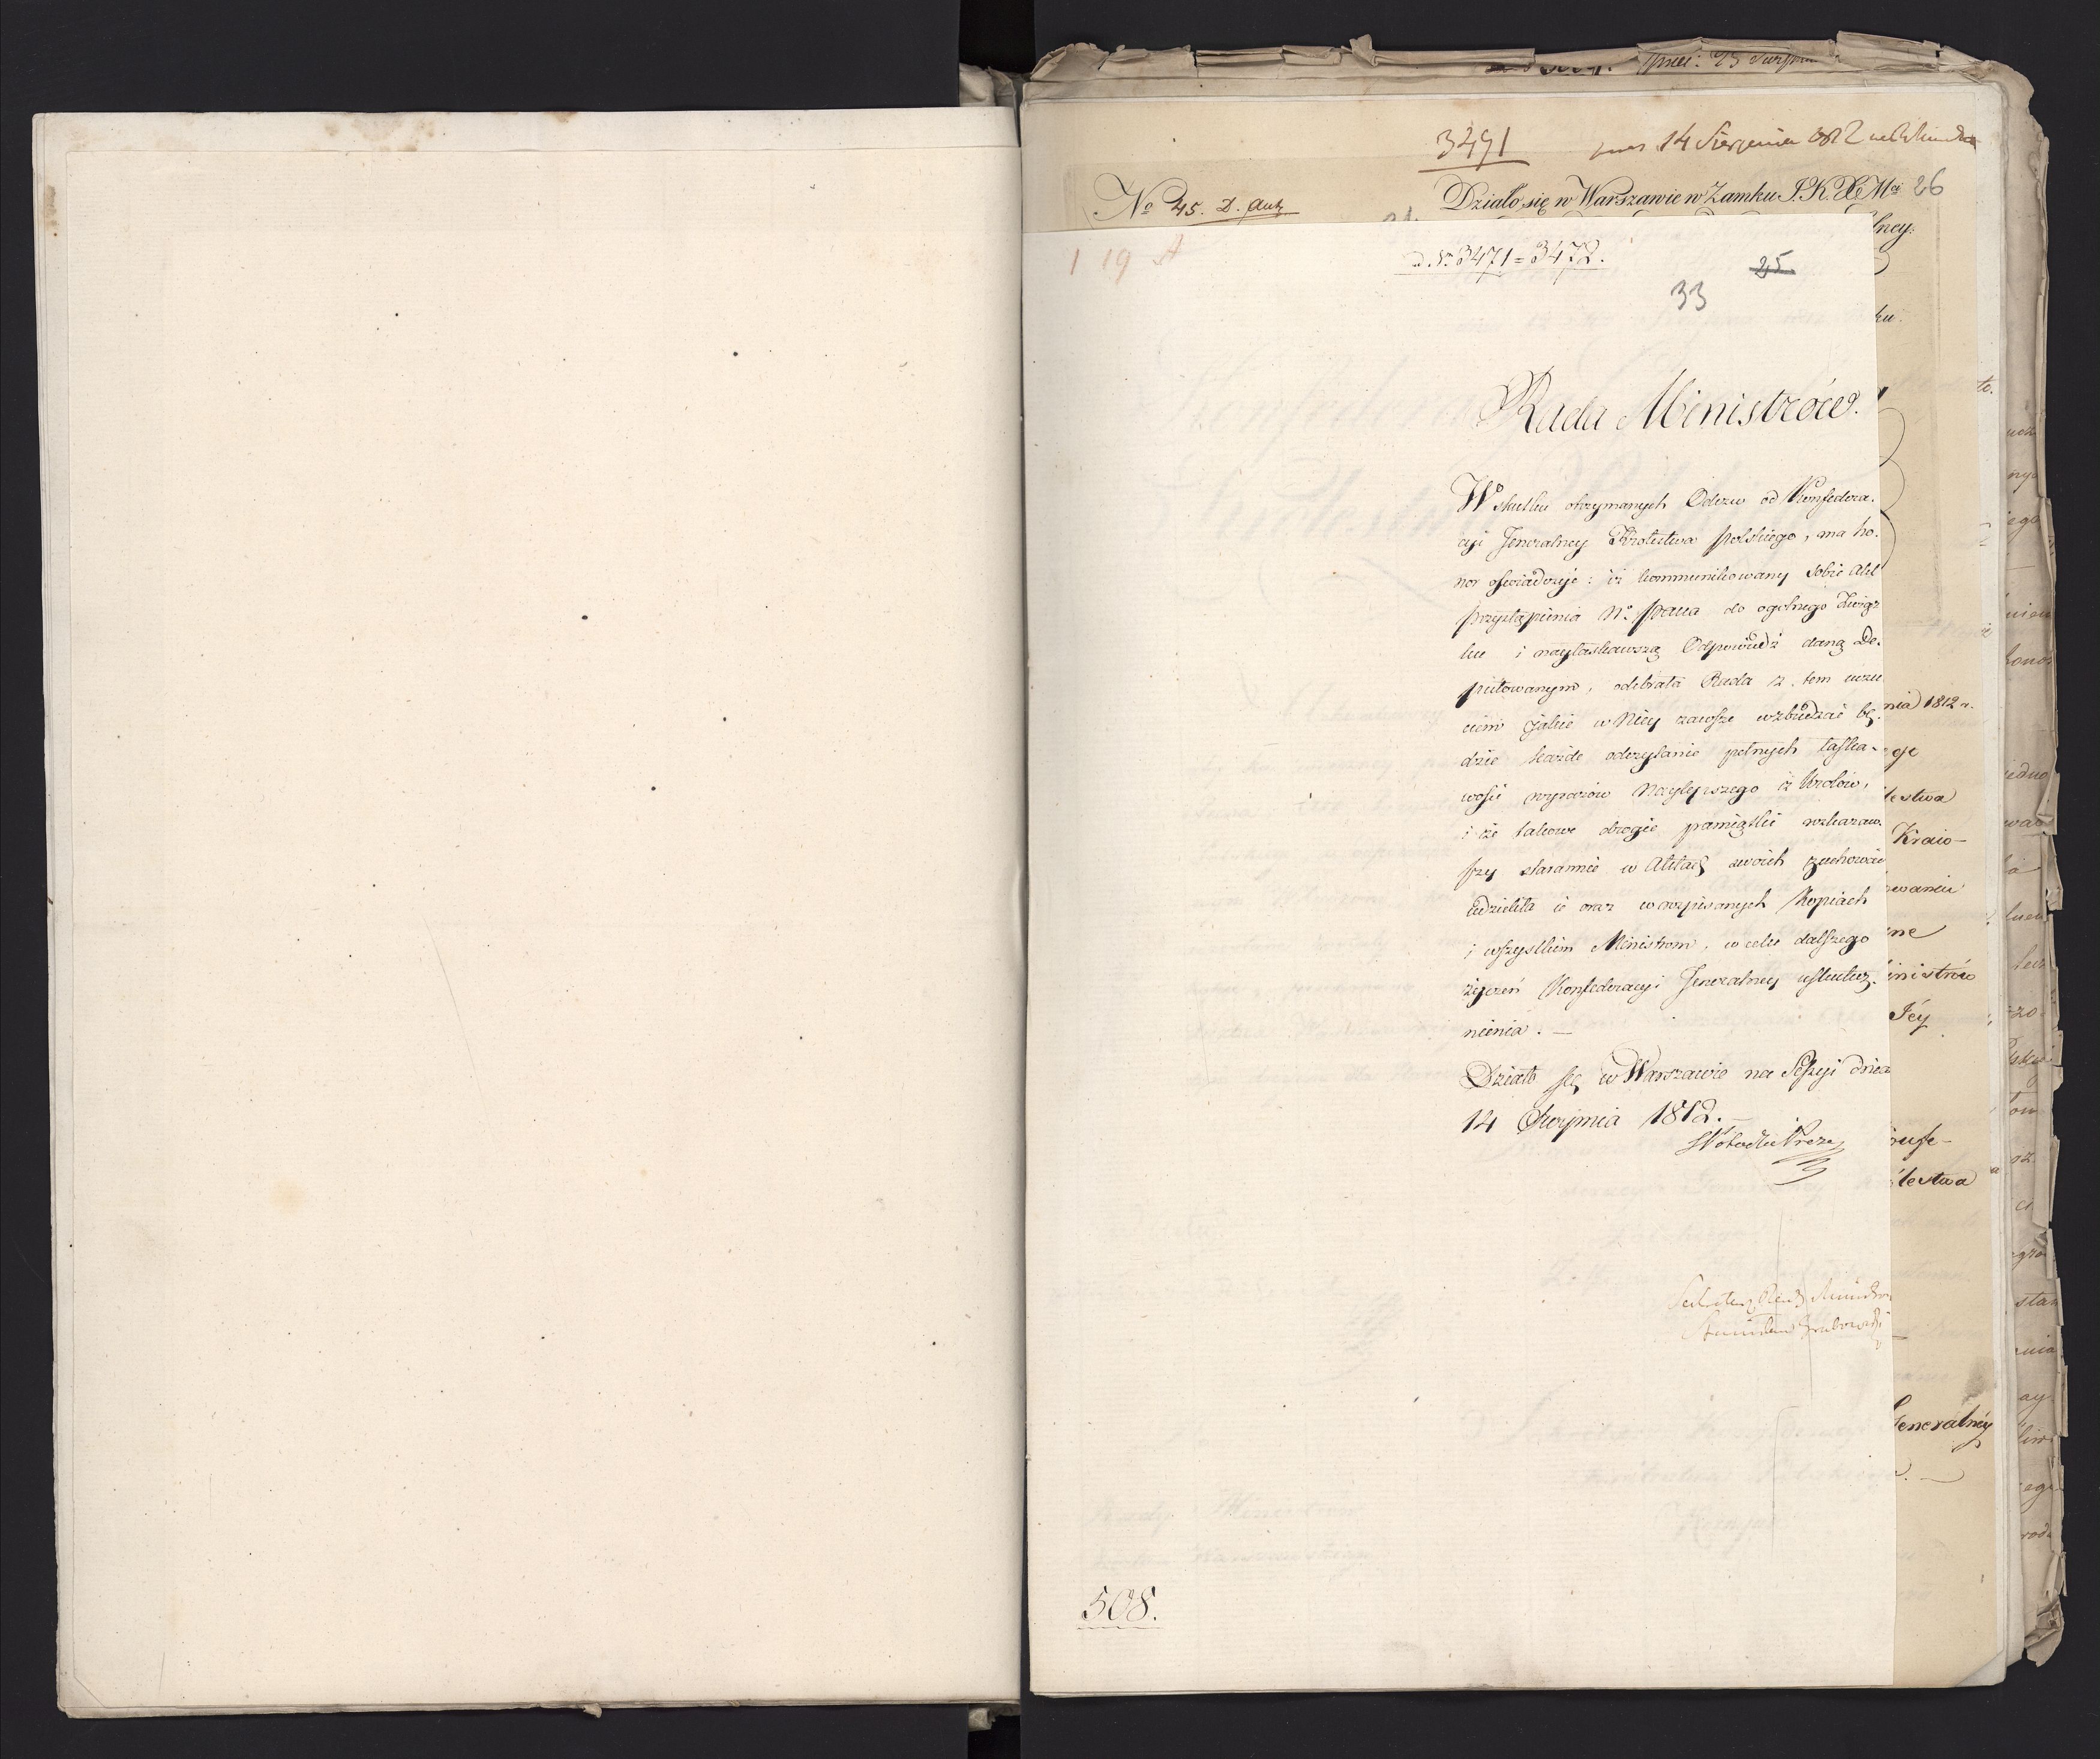 3471
14 Sierpnia 1812
No 45. D. Autz
Działo się w Warszawie w Zamku J. K. Xcey Mci
26
lney.
1 19 A
ad. No. 3471 = 3472.
25
33
ku.
Rada Ministrów.
W skutku otrzymanych Odezw od Konfedera-
cyi Jeneralney Krolestwa Polskiego, ma ho-
nor oświadczyć: iż kommunikowany sobie Akt
przystąpienia No. Pana do ogolnego Związ-
ku i nayłaskawszą Odpowiedź daną De-
putowanym, odebrała Rada z tem uczu
ciem jakie w Niey zawsze wzbudzać bę-
dzie każde odczytanie pełnych łaska-
wości wyrazów Naylepszego z Krolów,
i że takowe drogie pamiątki rozkazaw-
szy starannie w Aktach swoich zachować
udzieliła ie oraz w wypisanych Kopiach
i wszystkim Ministrom, w celu dalszego
życzeń Konfederacyi Jeneralney uskutecz-
nienia. —
Działo się w Warszawie na Sessyi dnia
14 Sierpnia 1812. —
Sekretarz Rady Ministrów
Stanisław Grabowski
508.
nia 1812 r.
lestwa
Kraio-
waniu
ne
inistrów
Jéy
lestwa
Generalnéy